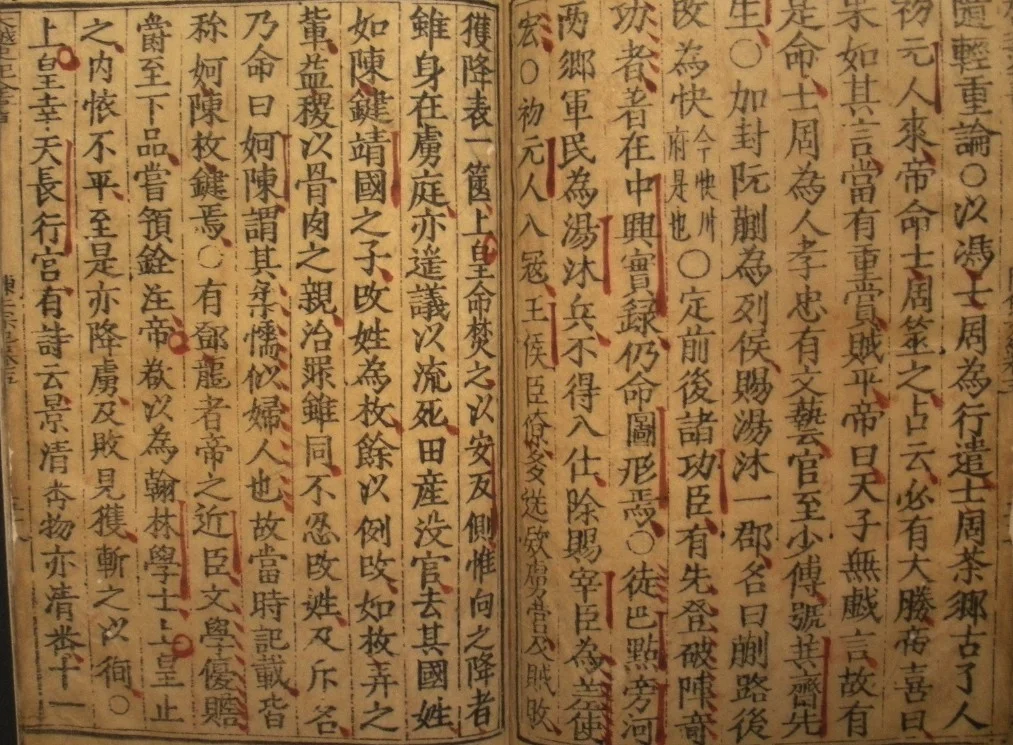 輕重論○以馮士周為行遣士周茶鄉古了人
初元人來帝命士周筮之占云必有大勝帝喜曰
果如其言當有重賞賊平帝曰天子無戲言故有
是命士周為人孝忠有文藝官至少傅號拱齋先
生○加封阮蒯為列侯賜湯沐一郡名曰蒯路後
改為快今快州府是也○定前後諸功臣有先登破陣奇
功者著在中興實録仍命圖形焉○徒巴點旁河
两鄉軍民為湯沐兵不得入仕除賜宰臣為盖使
宏○初元人入冦王侯臣僚多送欵虜營及賊敗
獲降表一篋上皇命焚之以安反側惟向之降者
雖身在虜庭亦遥議以流死田産没官去其國姓
如陳鍵靖國之子改姓為枚餘以例改如枚弄之
軰益稷以骨肉之親治罪雖同不忍改姓及斥名
乃命曰妸陳謂其柔懦似婦人也故當時記載皆
称妸陳枚鍵焉○有鄧龍者帝之近臣文學優贍
爵至下品嘗領銓注帝欲以為翰林學士上皇止
之内怀不平至是亦降虜及敗見獲斬之以徇○
上皇幸天長行宫有詩云景清㡬物亦清㡬十一